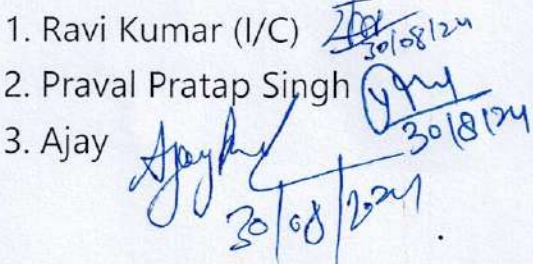 1. Ravi Kumar (I/C)
30/08/24
2. Praval Pratap Singh
30/8/24
3. Ajay
30/08/2024